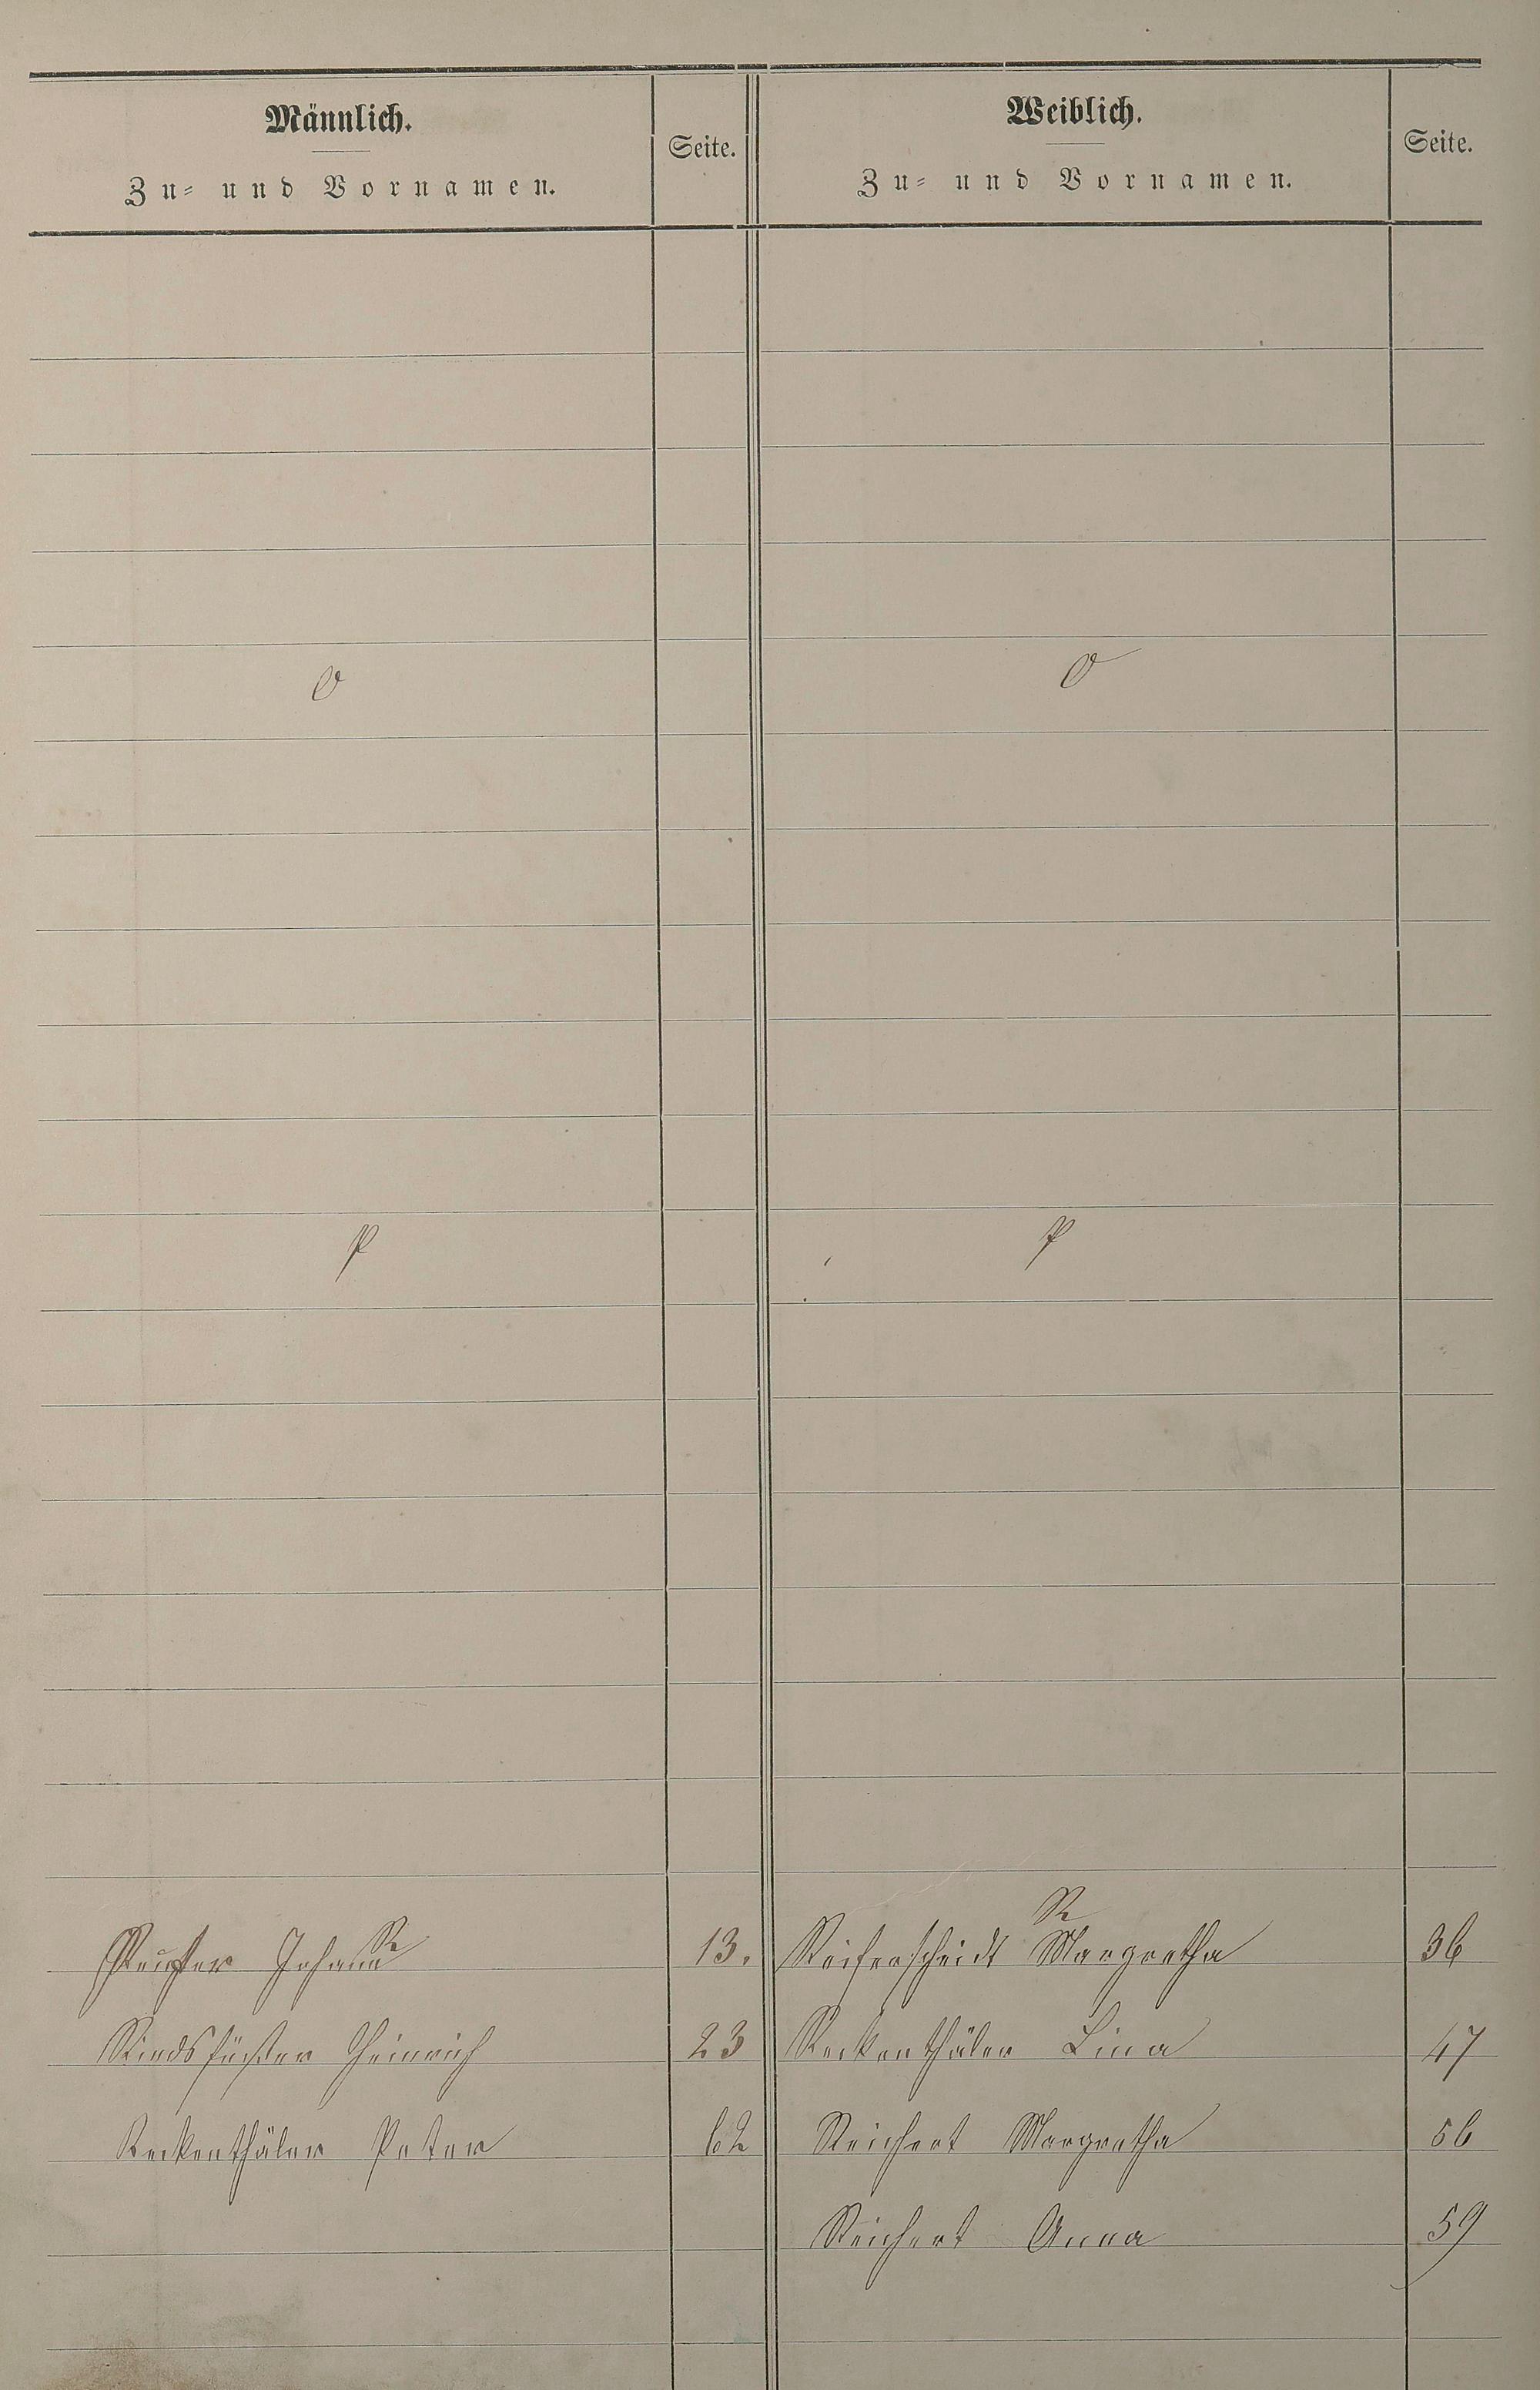 Männlich.
Zu- und Vornamen.
Seite.
Weiblich.
Zu- und Vornamen.
Seite.
O
O
P
P
R
R
Johann 13.
Reiferscheidt Margretha 36
Rindsfüßer Heinrich 23
Reckenthäler Lina 47
Reckenthäler Peter 62
Reichert Margretha 56
Reichert Anna 59